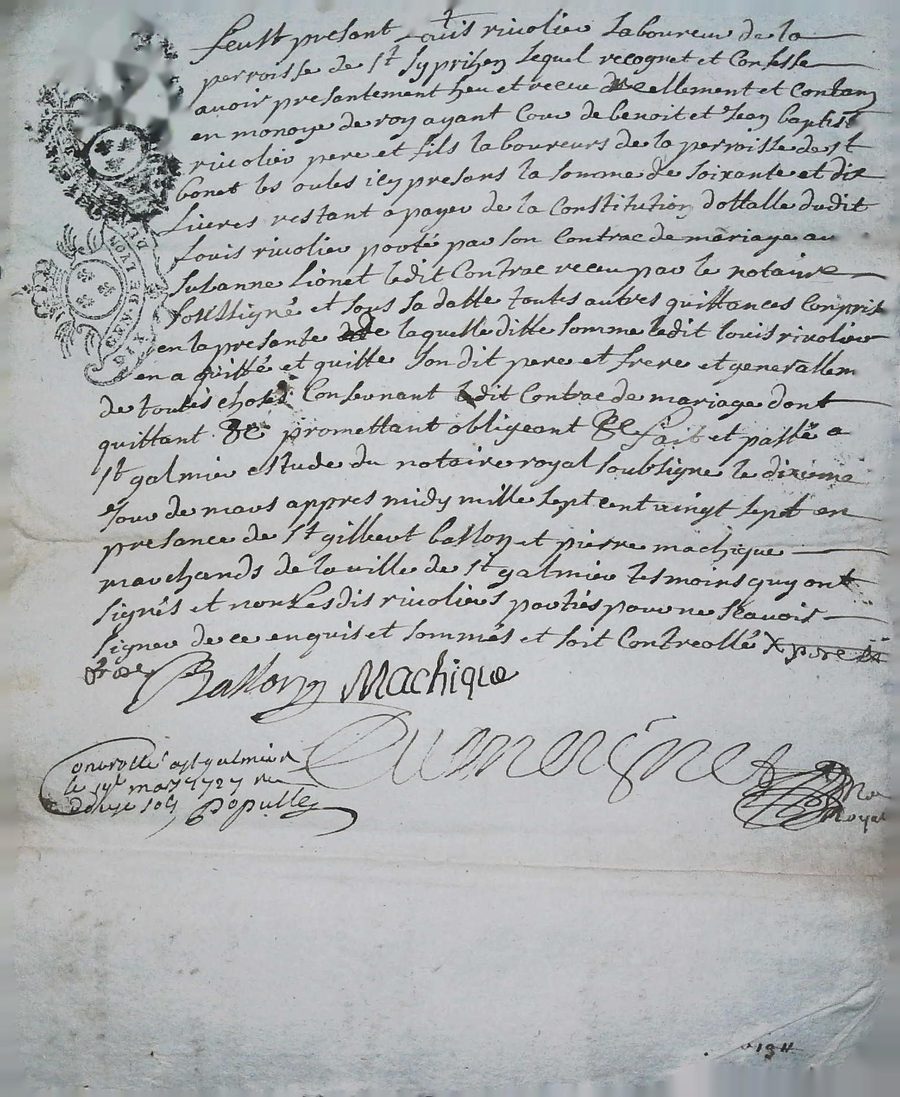 feust present Louis rivolier laboureur de la
perroisse de st syprihen lequel recognet et confesse
avoir presantement heu et receu reellement et contan
en monoye de roy ayant cour de benoit et Jean baptiste
rivolier pere et fils laboureurs de la perroisse de st
bonet les oules icy presans la somme de soixante et dix
livres restant a payer de la constitution dottalle dudit
Louis rivolier porté par son contrac de mariage au
susanne Lionet ledit contrac receu par le notaire
soussigné et sous sa datte toutes autres quittances compris
en la presante de laquelle ditte somme ledit louis rivolier
en a quitté et quitte son dit pere et frere et generallem
de toutes choses consernant ledit contrac de mariage dont
quittant &c promettant obligeant &c fait et passé a
st galmier estude du notaire royal soubsigne le dixième
jour de mars appres midy mille sept cent vingt sept en
presance de st gilbert basson et pierre machique
marchands de la ville de st galmier tesmoins quy ont
signés et non lesdis rivoliers partiés pour ne scavoir
signer de ce enquis et sommés et soit controllé X
Basson Machique
Controllé a st galmier
le 19e mars 1727 reu
douze sols Populle
No
Royal
GEN DE LYON
SIX